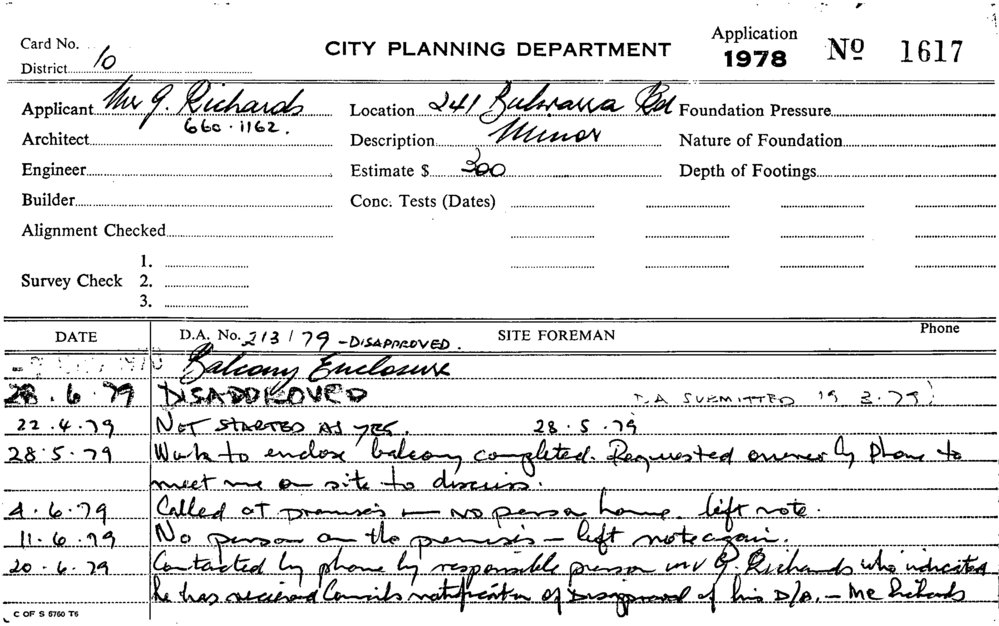 Card No.
District 10
CITY PLANNING DEPARTMENT
Application
1978 No 1617
Applicant Mr G. Richards
660.1162.
Location 241 Bulwarra Rd
Foundation Pressure
Architect
Description Minor
Nature of Foundation
Engineer
Estimate $ 300
Depth of Footings
Builder
Conc. Tests (Dates)
Alignment Checked
Survey Check 1.
2.
3.
DATE
D.A. No. 213/79 - DISAPPROVED.
SITE FOREMAN
Phone
Balcony Enclosure
28.6.79 DISAPPROVED
D.A SUBMITTED 19 3.79)
22.4.79 NOT STARTED AS YES. 28.5.79
28.5.79 Work to enclose balcony completed. Requested owner by phone to
meet me on site to discuss.
4.6.79 Called at premises — no person home. left note.
11.6.79 No person on the premises — left note again.
20.6.79 Contacted by phone by responsible person Mr G. Richards who indicated
he has received Councils notification of Disapproval of his D/A. — Mr Richards
C OF S 5760 T6